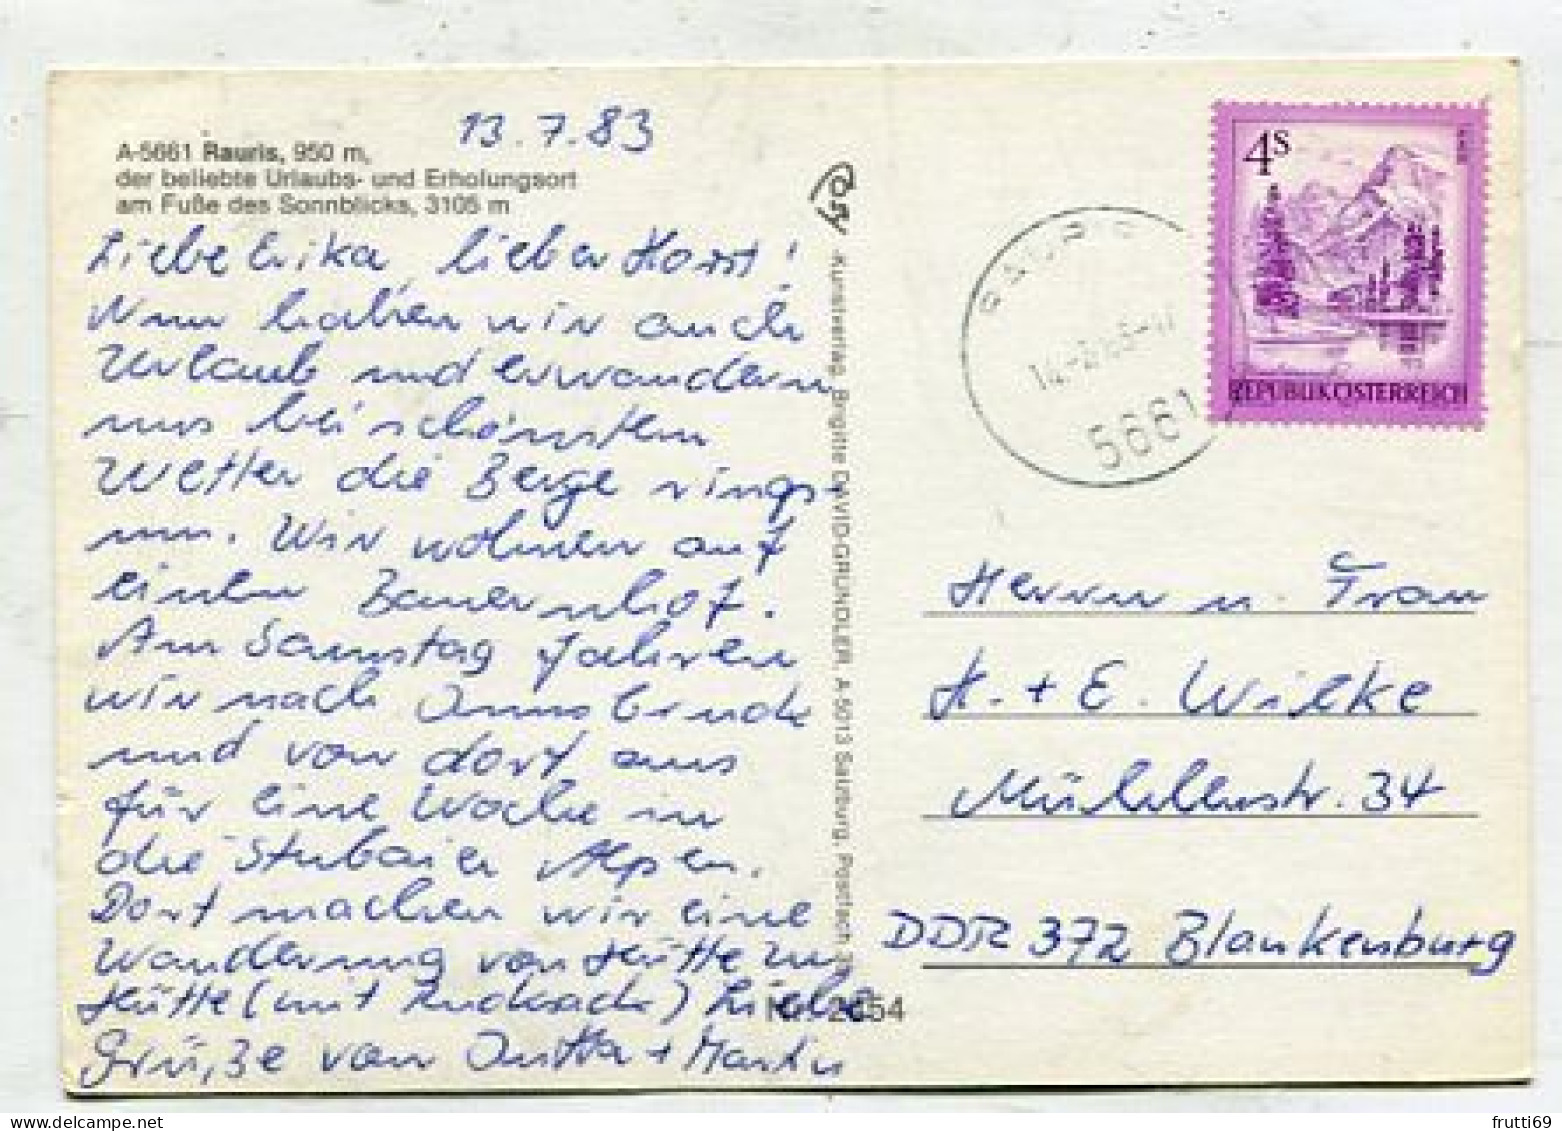 13.7.83
A-5661 Rauris, 950 m,
der beliebte Urlaubs- und Erholungsort
am Fuße des Sonnblicks, 3105 m
Liebe Erika, lieber Horst!
Nun haben wir auch
Urlaub und erwandern
uns bei schönstem
Wetter die Berge rings-
um. Wir wohnen auf
einem Bauernhof.
Am Samstag fahren
wir nach Innsbruck
und von dort aus
für eine Woche in
die Stubaier Alpen.
Dort machen wir eine
Wanderung von Hütte zu
Hütte (mit Rucksack) Liebe
Grüße von Jutta + Martin
Kunstverlag Brigitte DAVID-GRUNDLER, A-5013 Salzburg, Postfach
Nr. 2654
4S
REPUBLIK ÖSTERREICH
RAURIS
5661
Herrn u. Frau
H. + E. Wilke
Mühlenstr. 34
DDR 372 Blankenburg
frutti69